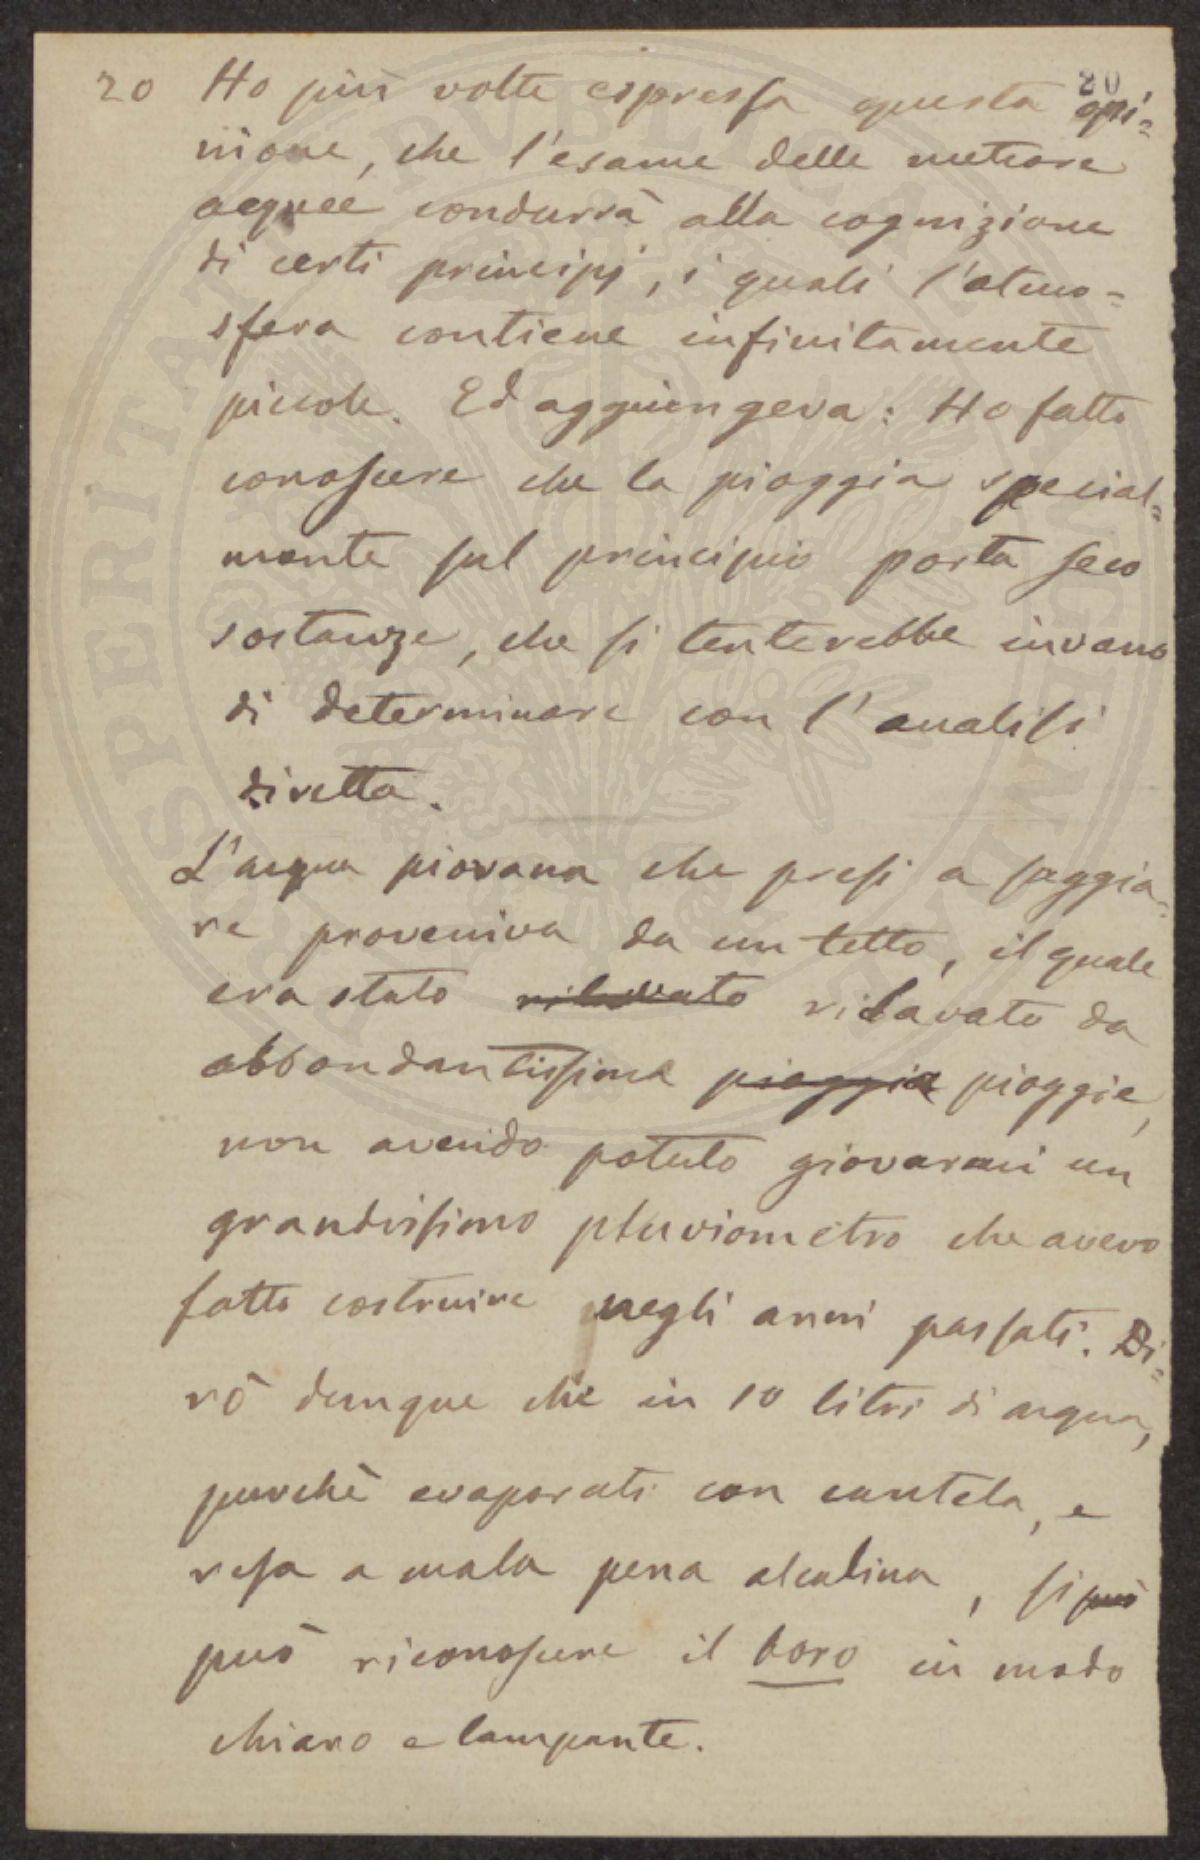 80
20 Ho più volte espressa questa opi=
nione, che l'esame delle meteore
acquee condurrà alla cognizione
di certi principj, i quali l'atmo=
sfera contiene infinitamente
piccole. Ed aggiungeva: Ho fatto
conoscere che la pioggia special=
mente sul principio porta seco
sostanze, che si tenterebbe invano
di determinare con l'analisi
diretta.
L'acqua piovana che presi a saggia=
re proveniva da un tetto, il quale
era stato rilavato rilavato da
abbondantissime pioggia pioggie,
non avendo potuto giovarmi un
grandissimo pluviometro che avevo
fatto costruire negli anni passati. Di=
rò dunque che in 10 litri di acqua,
purchè evaporati con cautela, e
resa a mala pena alcalina, si può
può riconoscere il boro in modo
chiaro e lampante.